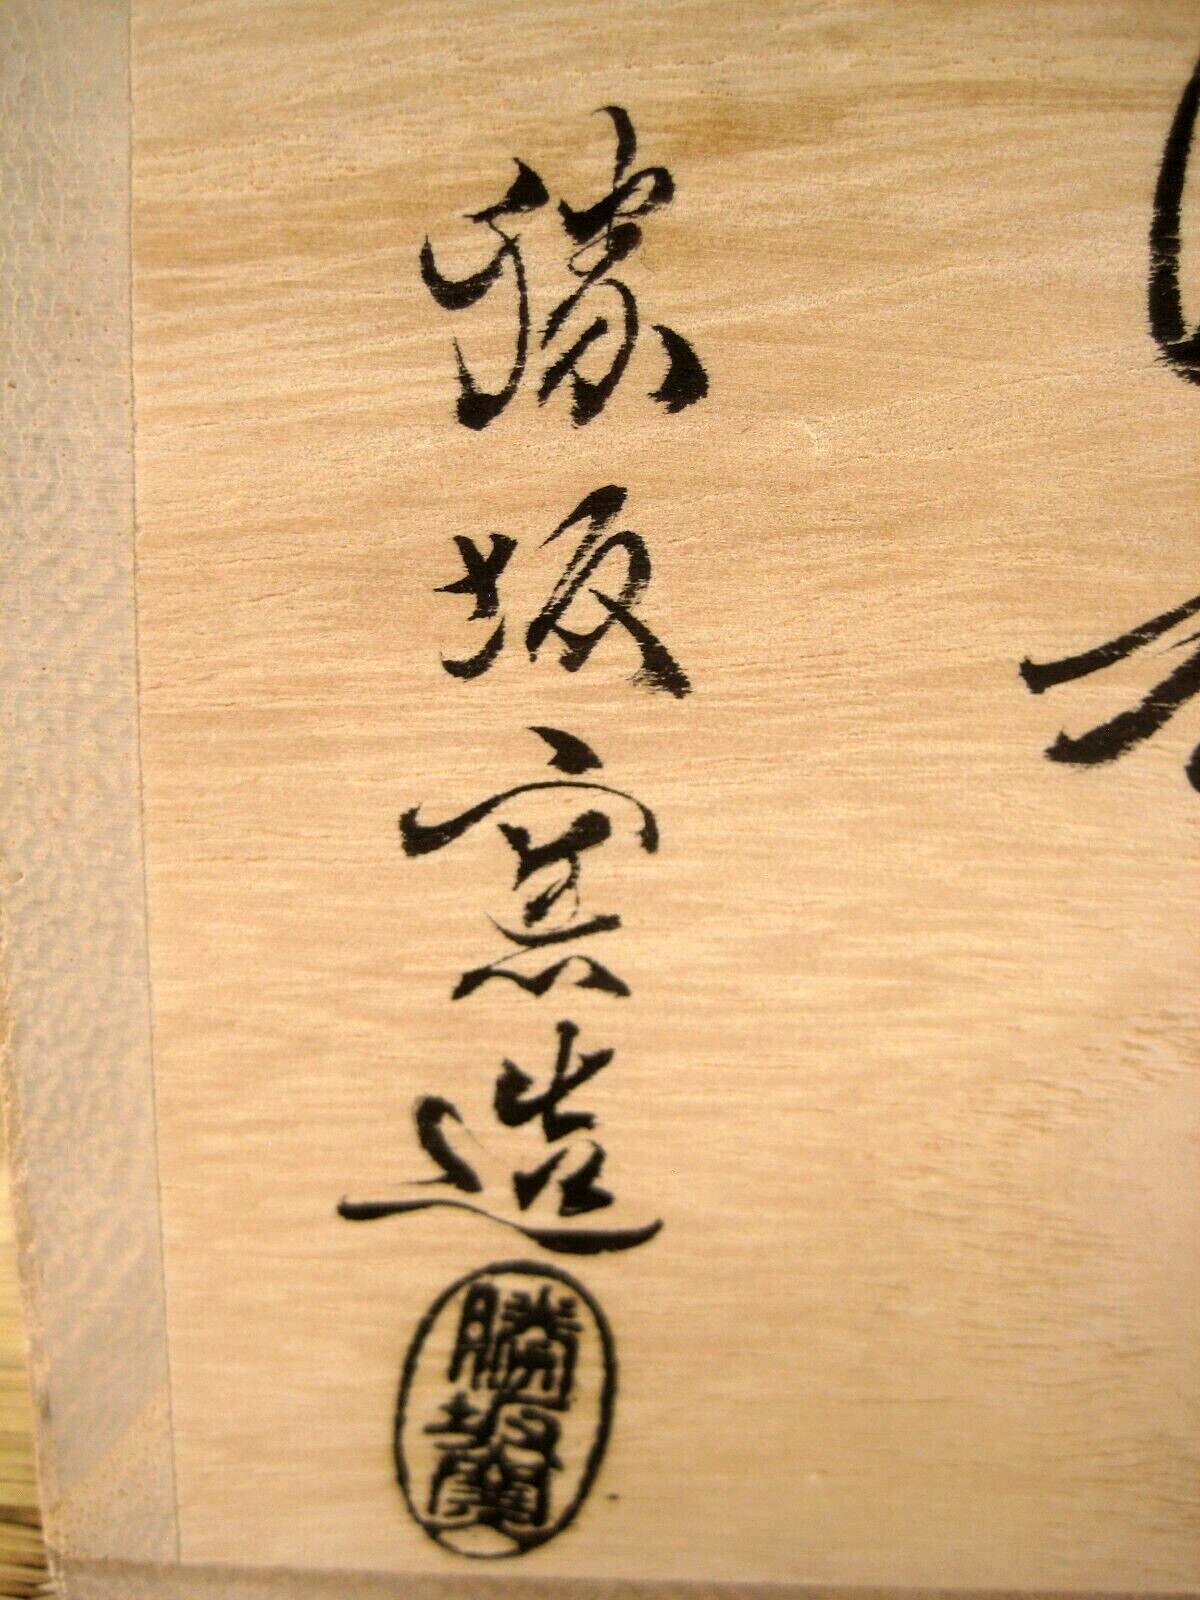 勝坂窯造
勝坂窯